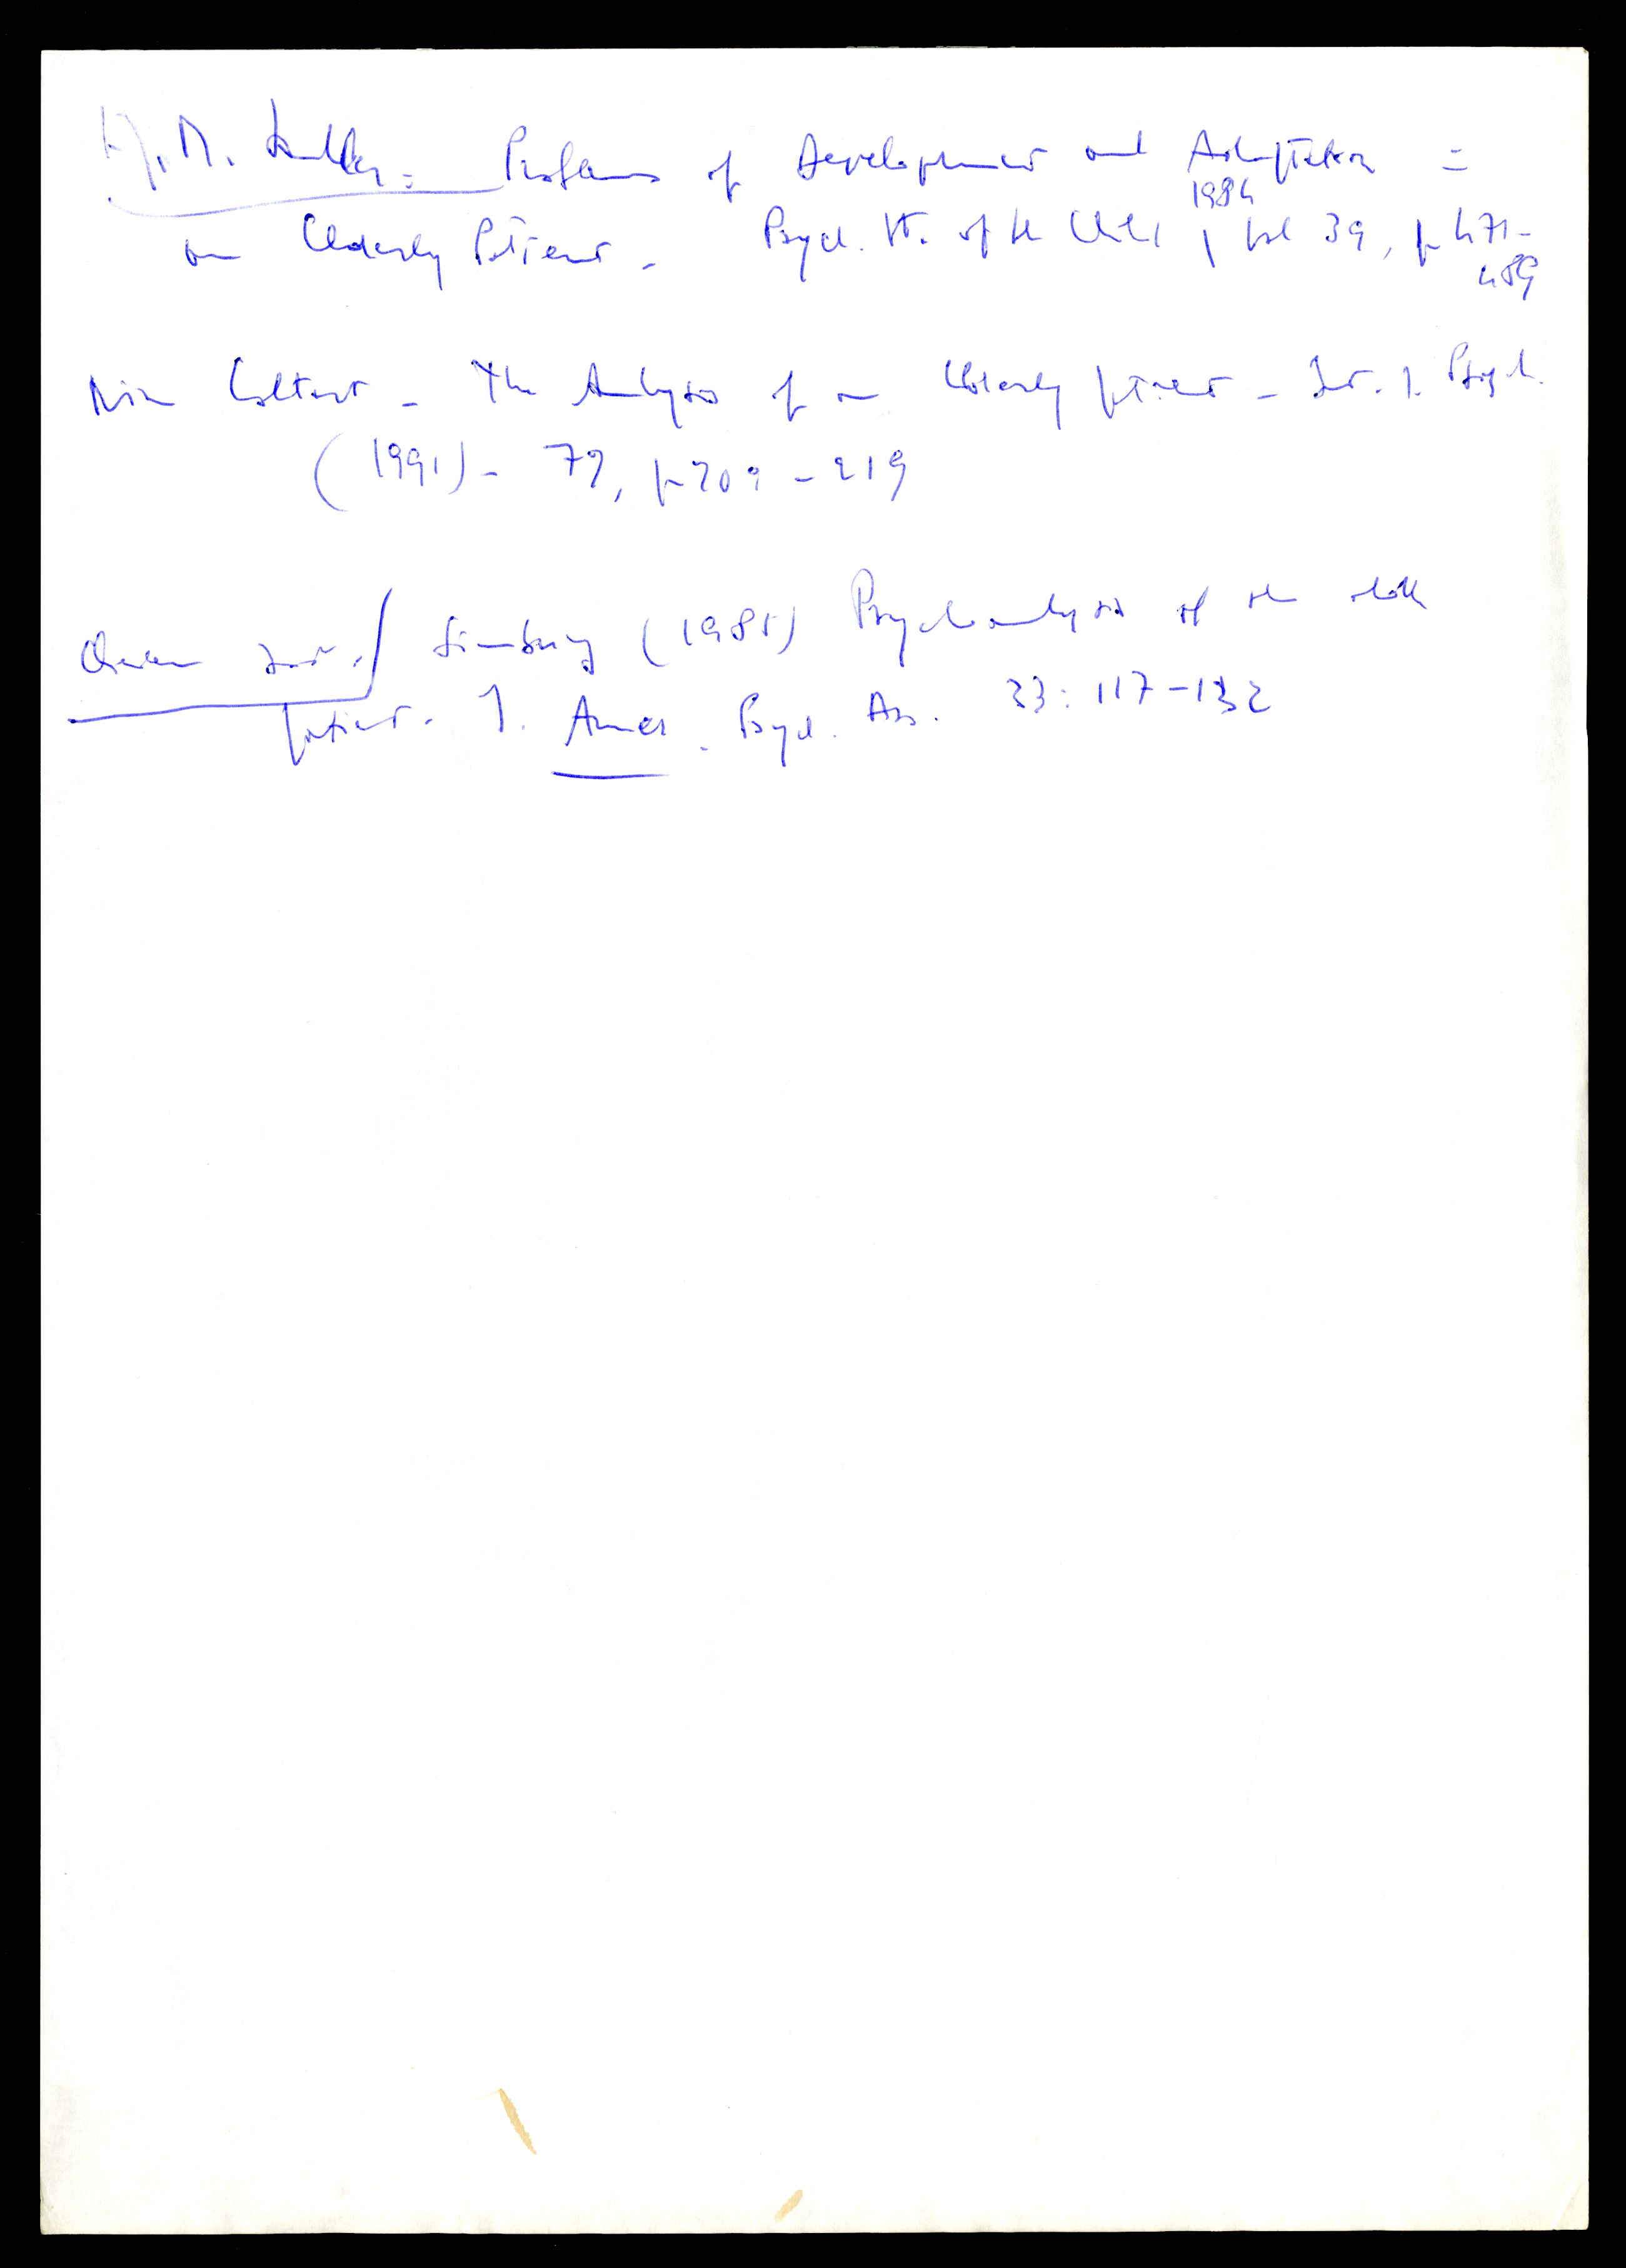 A.M. Sandler: Problems of Development and Adaptation =
an Elderly Patient - Psych. St. of the Child, 1984 vol 39, p 471-
489
Nina Coltart - The Analysis of an Elderly patient - Int. J. Psych.
(1991) - 72, p 209 - 219
Simburg (1985) Psychoanalysis of the older
patient. J. Amer. Psych. Ass. 33: 117-132